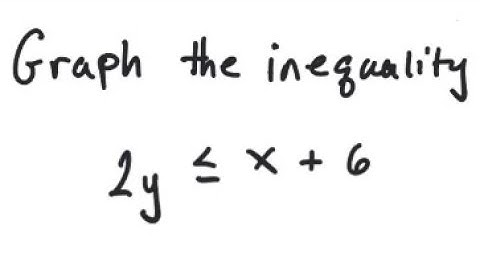 Graph the inequality
2y ≤ x + 6